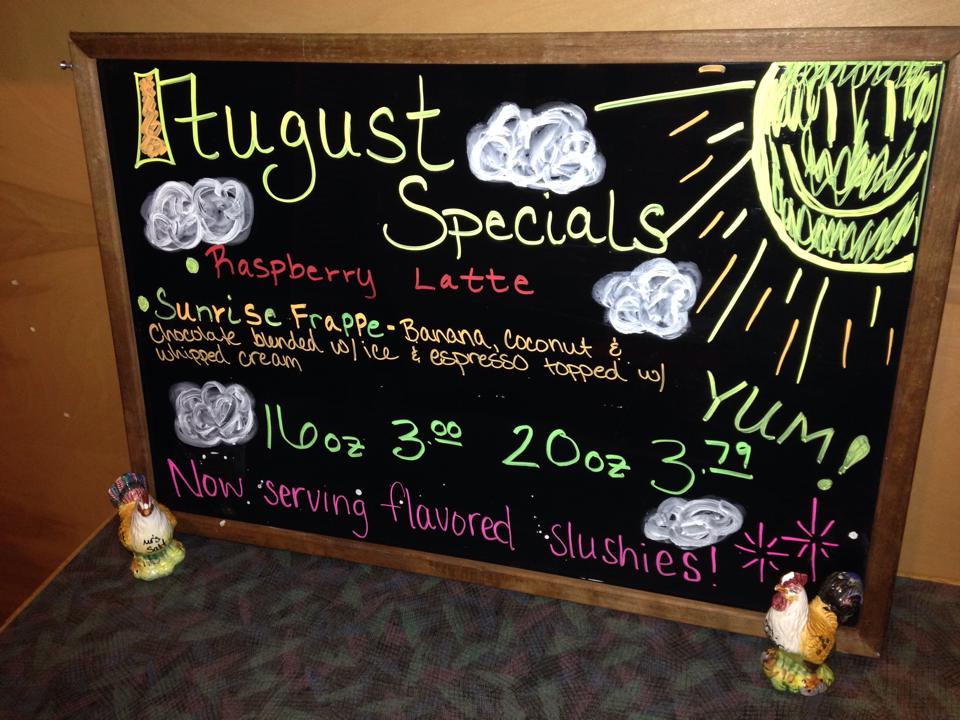 August
Specials
• Raspberry Latte
• Sunrise Frappe - Banana, Coconut &
Chocolate blended w/ ice & espresso topped w/
whipped cream
YUM!
16oz 3.00 20oz 3.79
Now serving flavored slushies!